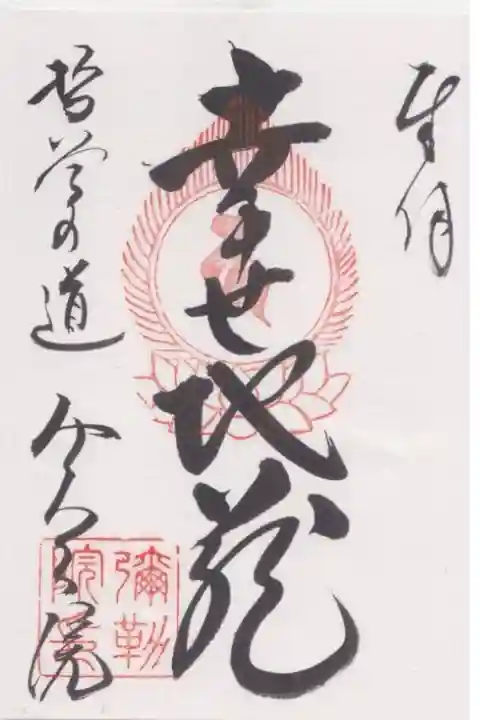 奉拝
幸世地蔵
哲学の道 弥勒院
彌勒院